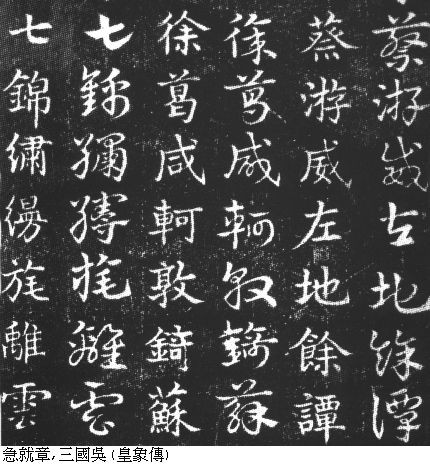 蔡游威左地餘譚
蔡游威左地餘譚
徐葛咸軻敦錡蘇
徐葛咸軻敦錡蘇
七錦繡縵旄離雲
七錦繡縵旄離雲
急就章,三國吳(皇象傳)